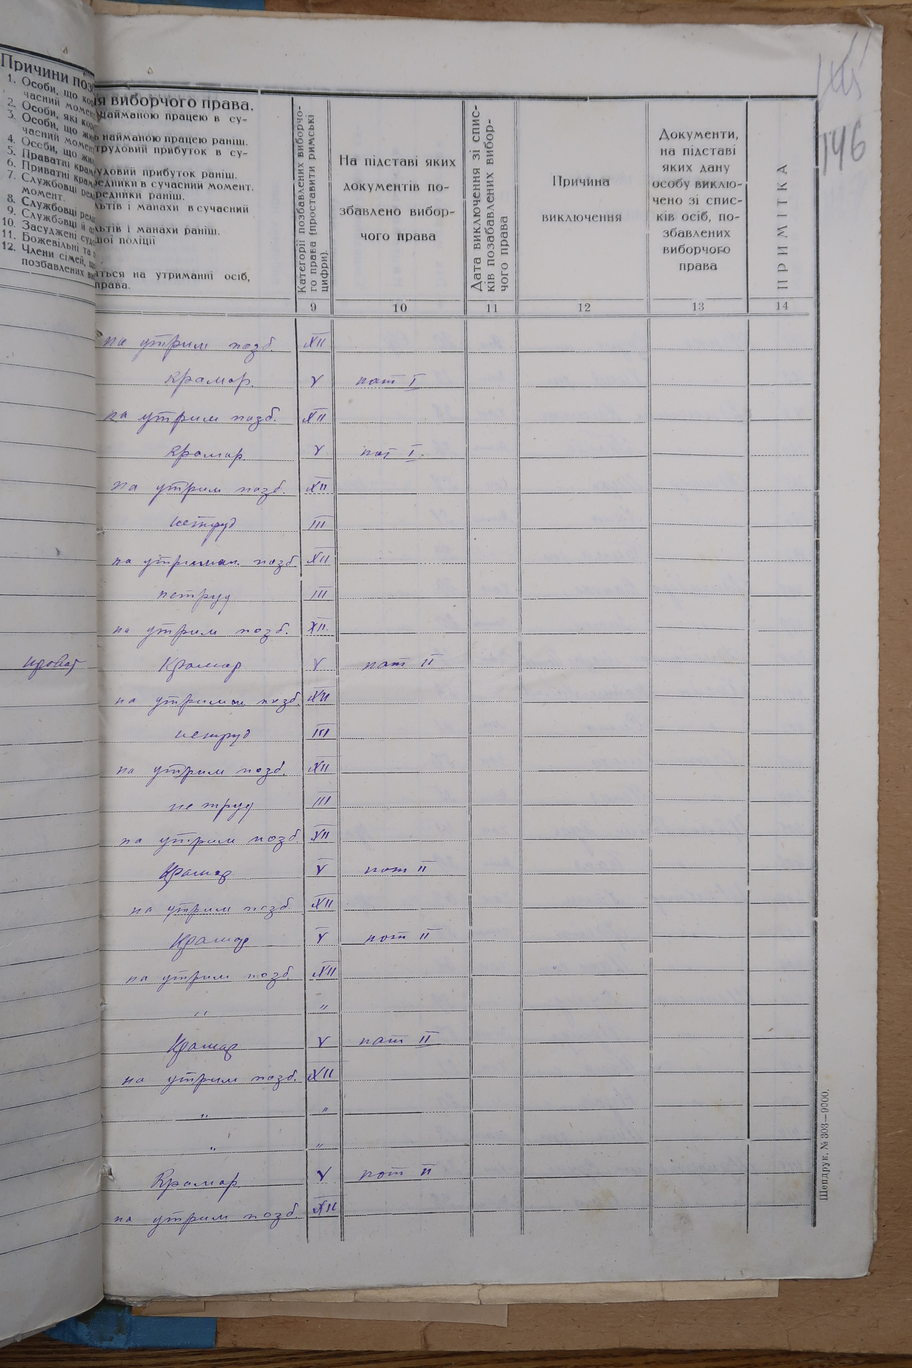 146
Причини поз
1. Особи, що ко
часний момен
2. Особи, які ко
3. Особи, що жи
часний момен
4. Особи, що жи
5. Приватні крам
6. Приватні крам
7. Службовці рел
момент.
8. Службовці рел
9. Службовці й
10. Засуджені суд
11. Божевільні та
12. Члени сімей, що
позбавлених в
ня виборчого права.
найманою працею в су-
найманою працею раніш.
трудовий прибуток в су-
удовий прибуток раніш.
редники в сучасний момент.
редники раніш.
льтів і манахи в сучасний
льтів і манахи раніш.
ної поліції
ться на утриманні осіб,
права.
Категорії позбавлених виборчо-
го права (проставити римські
цифри).
На підставі яких
документів по-
збавлено вибор-
чого права
Дата виключення зі спис-
ків позабавлених вибор-
чого права
Причина
виключення
Документи,
на підставі
яких дану
особу виклю-
чено зі спис-
ків осіб, по-
збавлених
виборчого
права
ПРИМІТКА
9 10 11 12 13 14
на утрим позб. XII
Крамар. V пат I
на утрим позб. XII
Крамар V пат I.
на утрим позб. XII
нетруд III
на утриман. позб. XII
нетруд III
на утрим позб. XII.
Крамар V пат II
на утриман позб. XII
нетруд III
на утрим позб. XII
не труд III
на утрим позб. XII
Крамар V пат II
на утрим позб XII
Крамар V пат II
на утрим позб XII
" "
Крамар V пат II
на утрим позб. XII
" "
" "
Крамар. V пат II
на утрим позб XII
Шепдрук. № 303—9000.